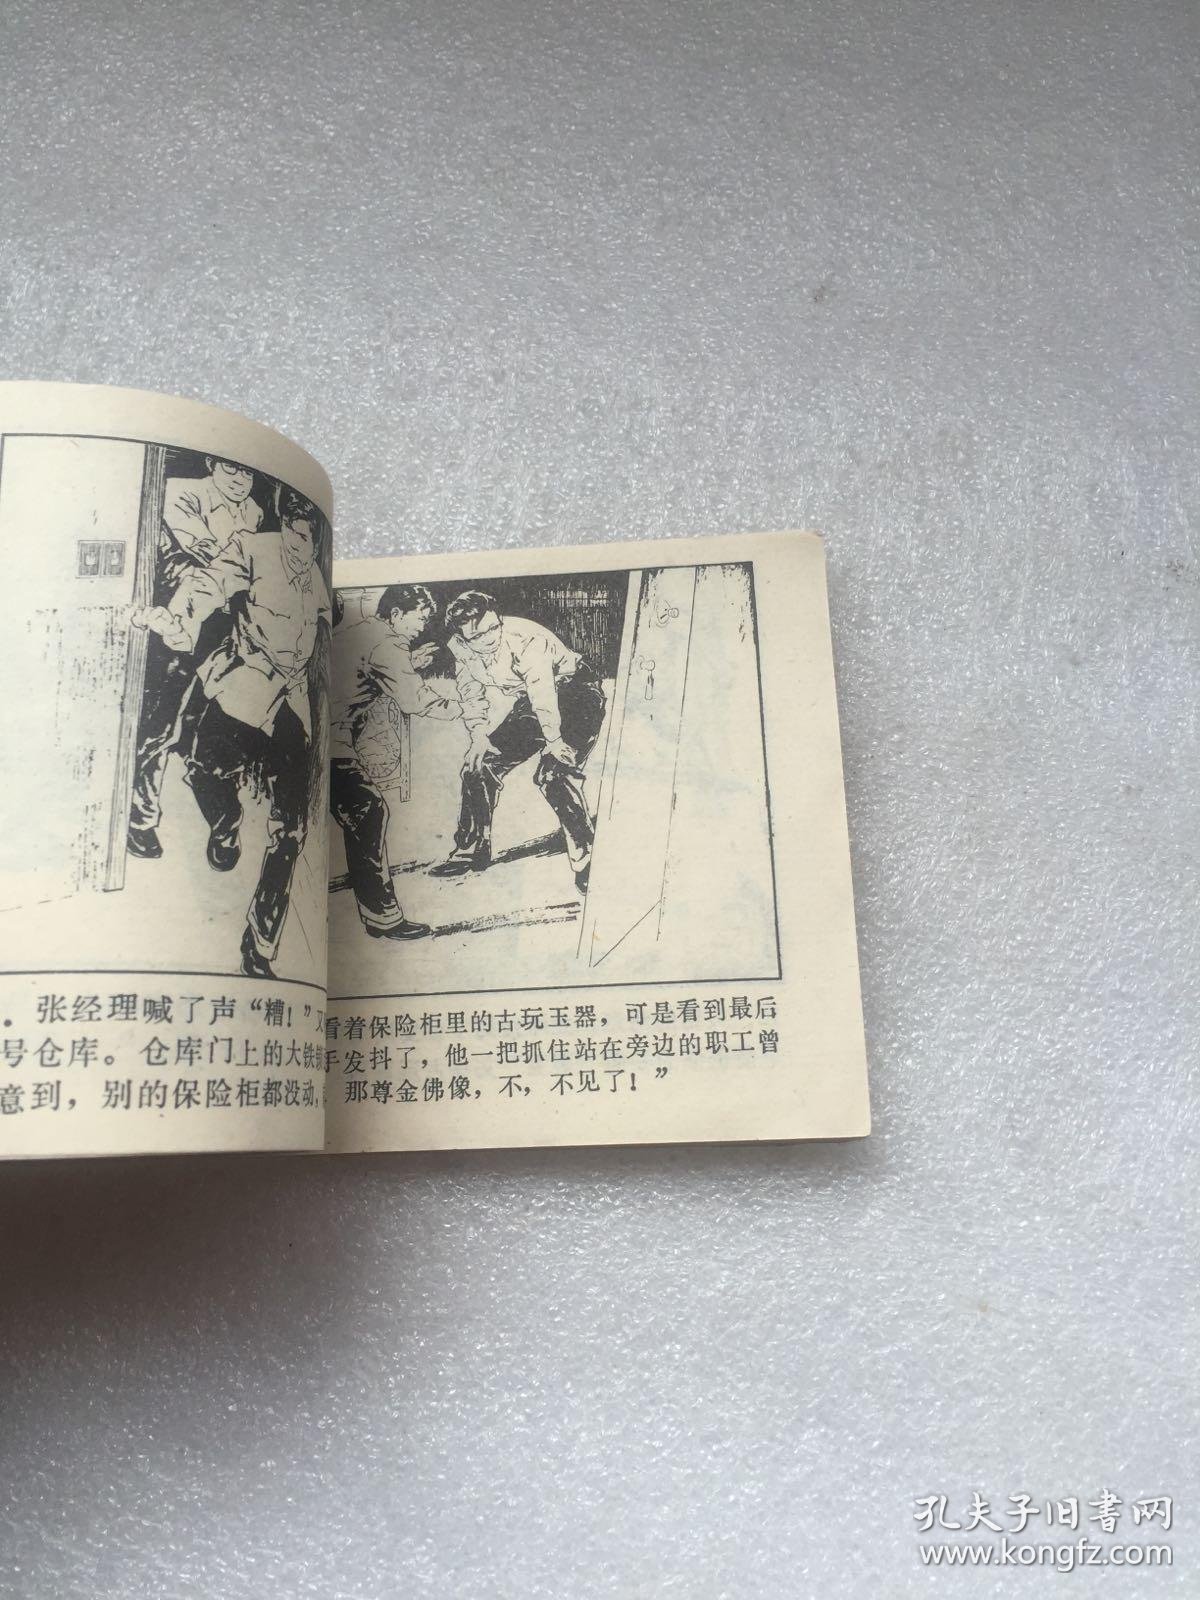 ．张经理喊了声“糟！”又
号仓库。仓库门上的大铁
意到，别的保险柜都没动，
看着保险柜里的古玩玉器，可是看到最后
手发抖了，他一把抓住站在旁边的职工曾
那尊金佛像，不，不见了！”
孔夫子旧书网
www.kongfz.com